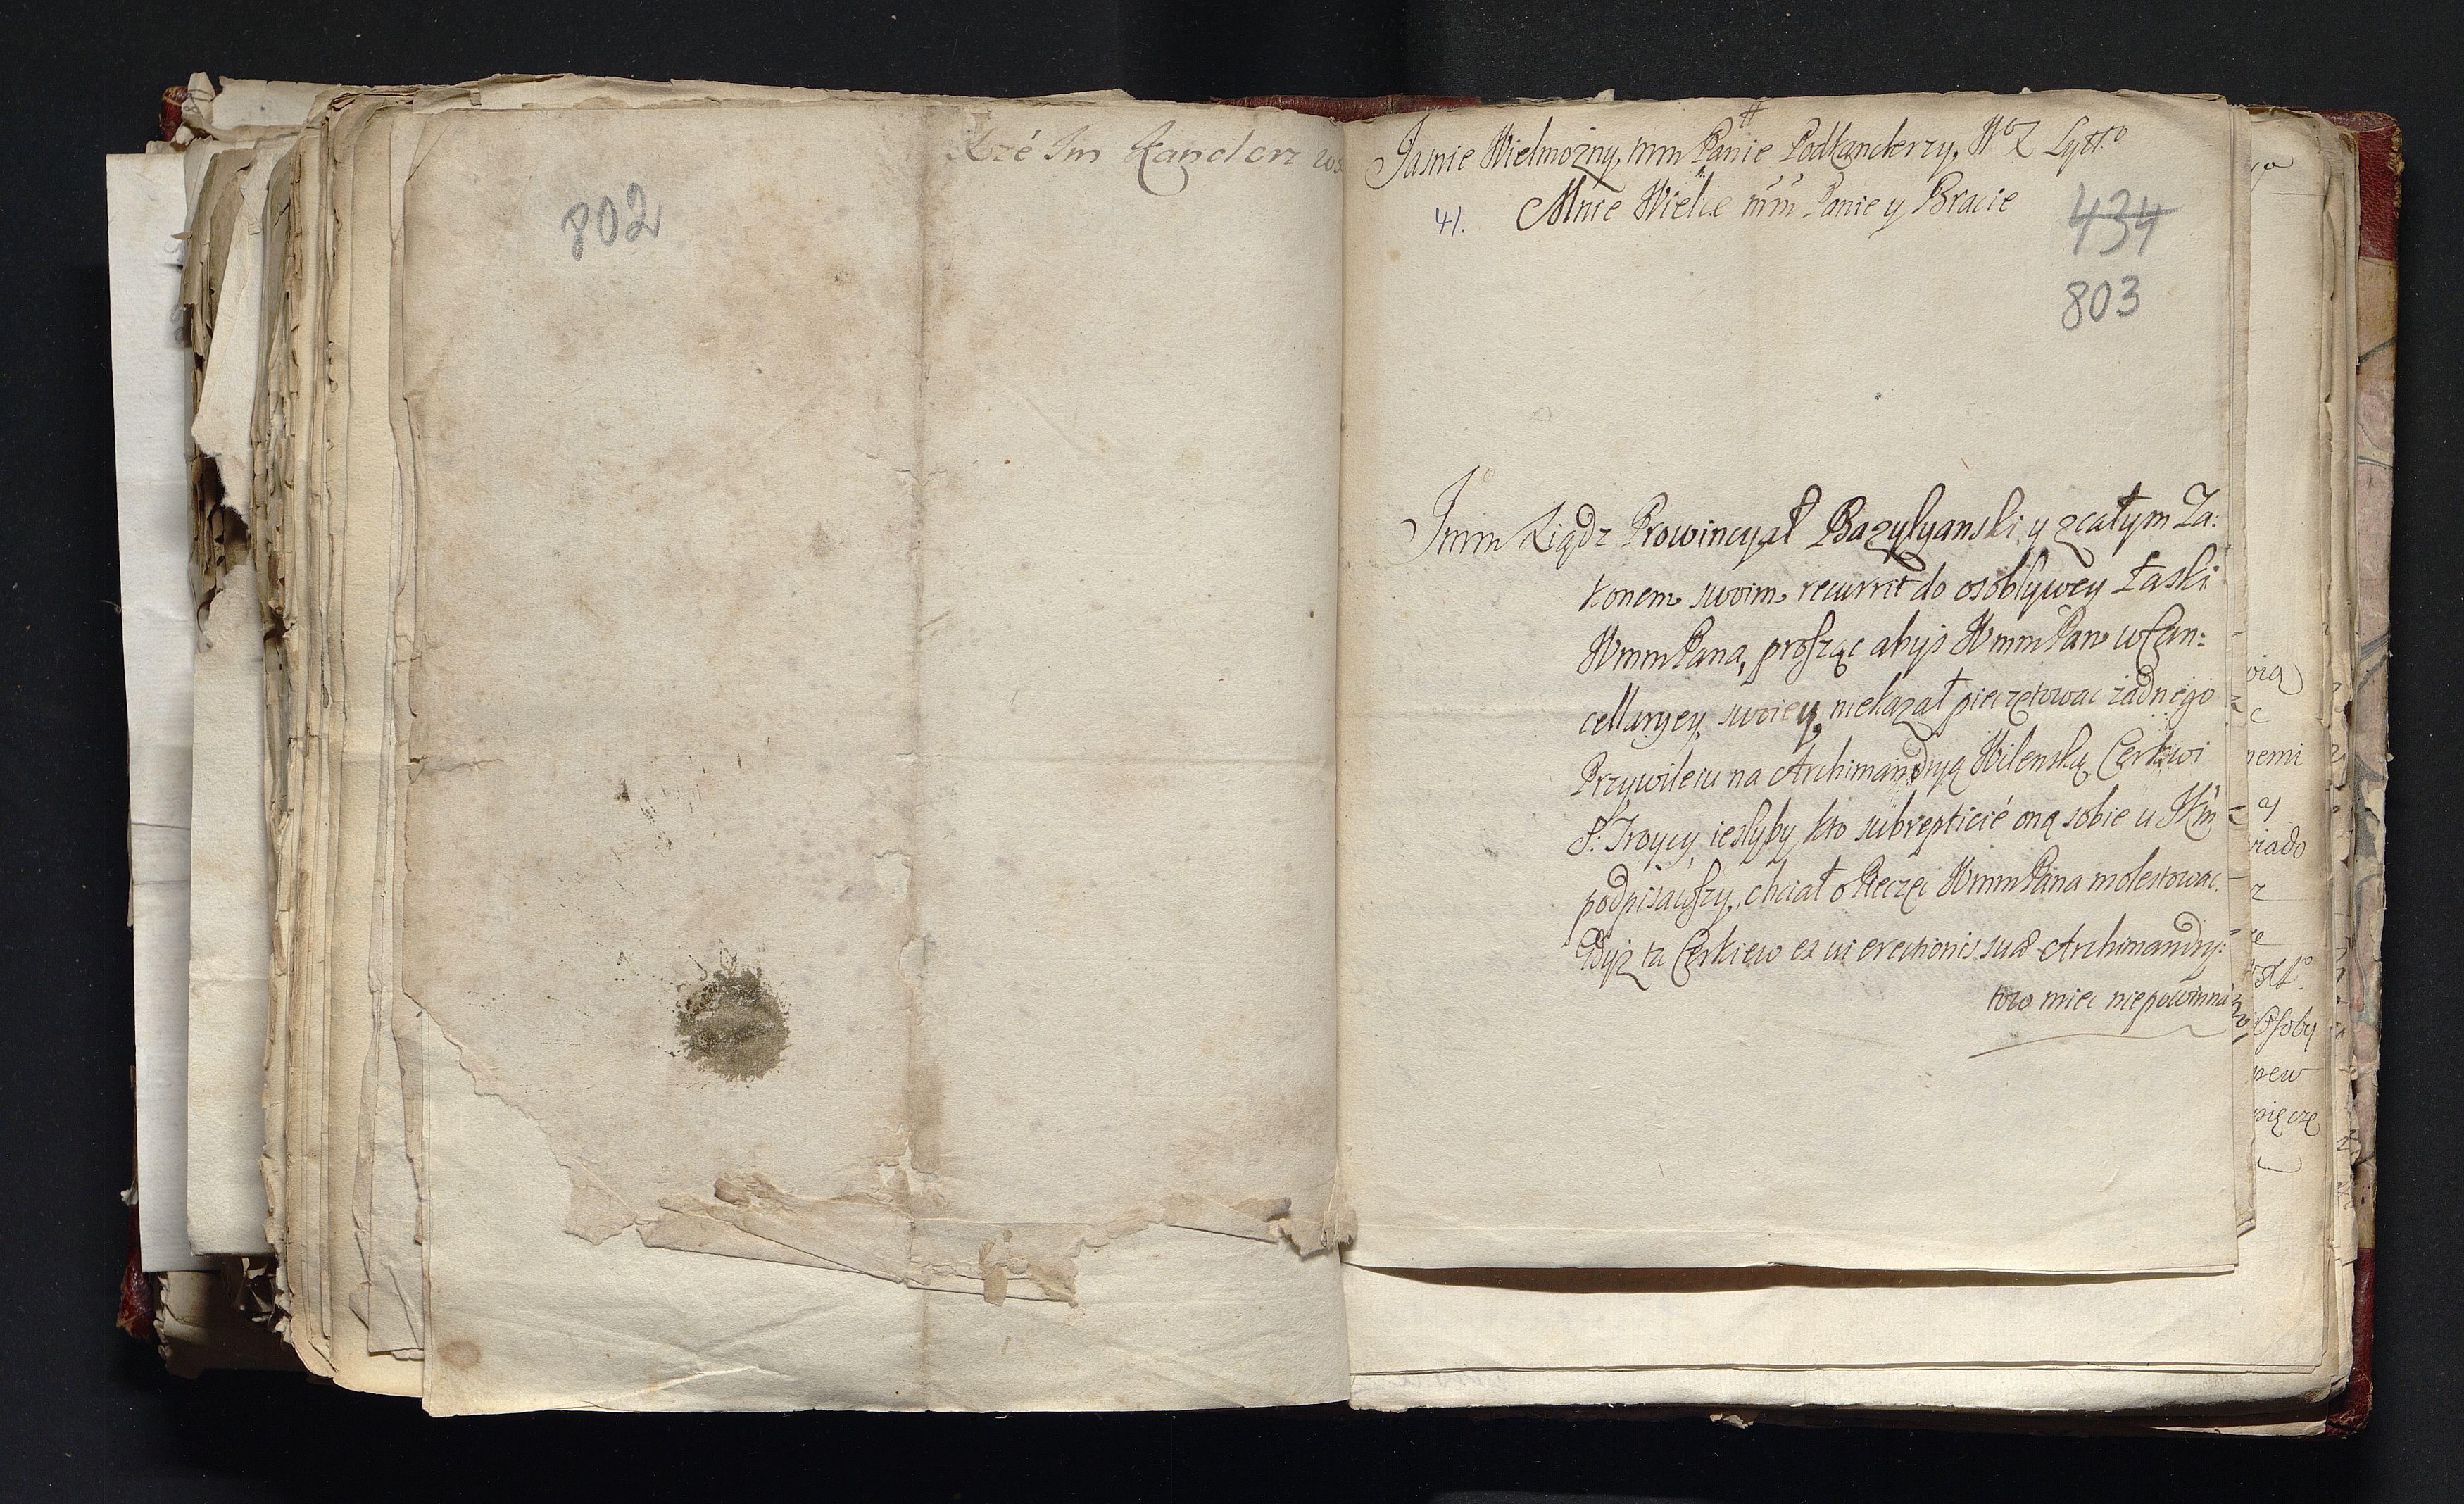 Xzé Im Kanclerz
802
Jasnie Wielmozny, mm Panie Podkanclerzy, W X Lytt.o
41. Mnie Wielce mm Panie y Bracie
434
803
Jmm Xiądz Prowincyał Bazylyanski y z całym Za:
konem swoim, recurrit do osoblywey Łaski
WmmPana, prosząc abyś WmmPan w Can:
cellaryey swoiey niekazał pieczętowac żadnego
Przywileiu na Archimandryą Wilenską Cerkwi
S. Troycy, ieslyby kto subrepticié oną sobie u JKm
podpisawszy, chciał o Pieczęć WmmPana molestowac.
Gdyż ta Cerkiew ex vi erectionis suæ Archimandry:
tow miec niepowinna
nemi
y
Osoby